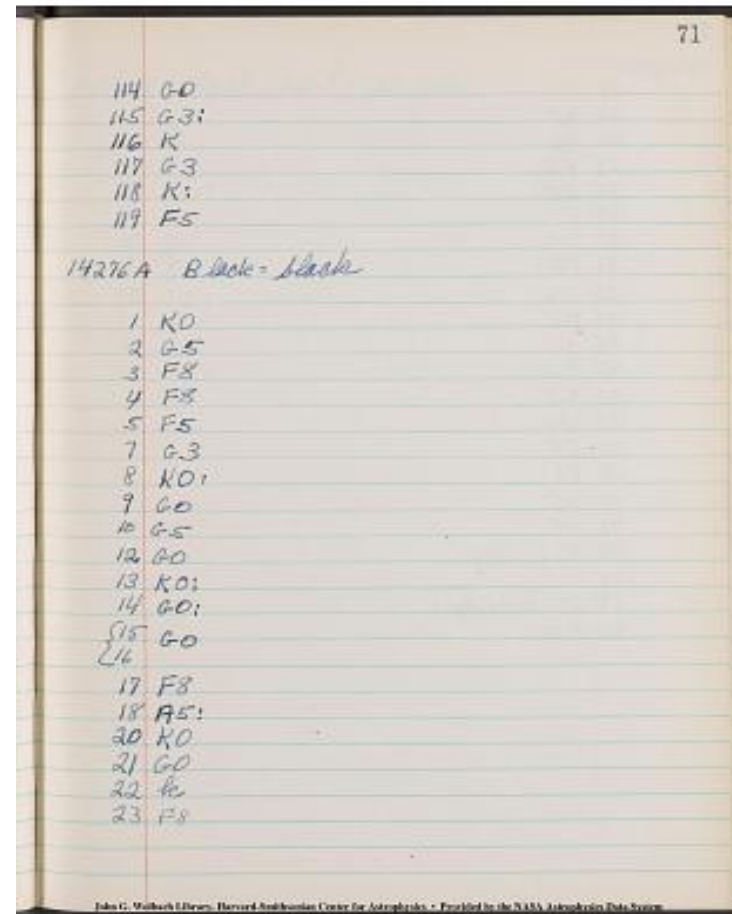 71
114 G0
115 G3:
116 K
117 G3
118 K:
119 F5
14276A Black = black
1 K0
2 G5
3 F8
4 F8
5 F5
7 G3
8 K0:
9 G0
10 G5
12 G0
13 K0:
14 G0:
{15 G0
{16
17 F8
18 A5:
20 K0
21 G0
22 K
23 F8
John G. Wolbach Library, Harvard-Smithsonian Center for Astrophysics • Provided by the NASA Astrophysics Data System